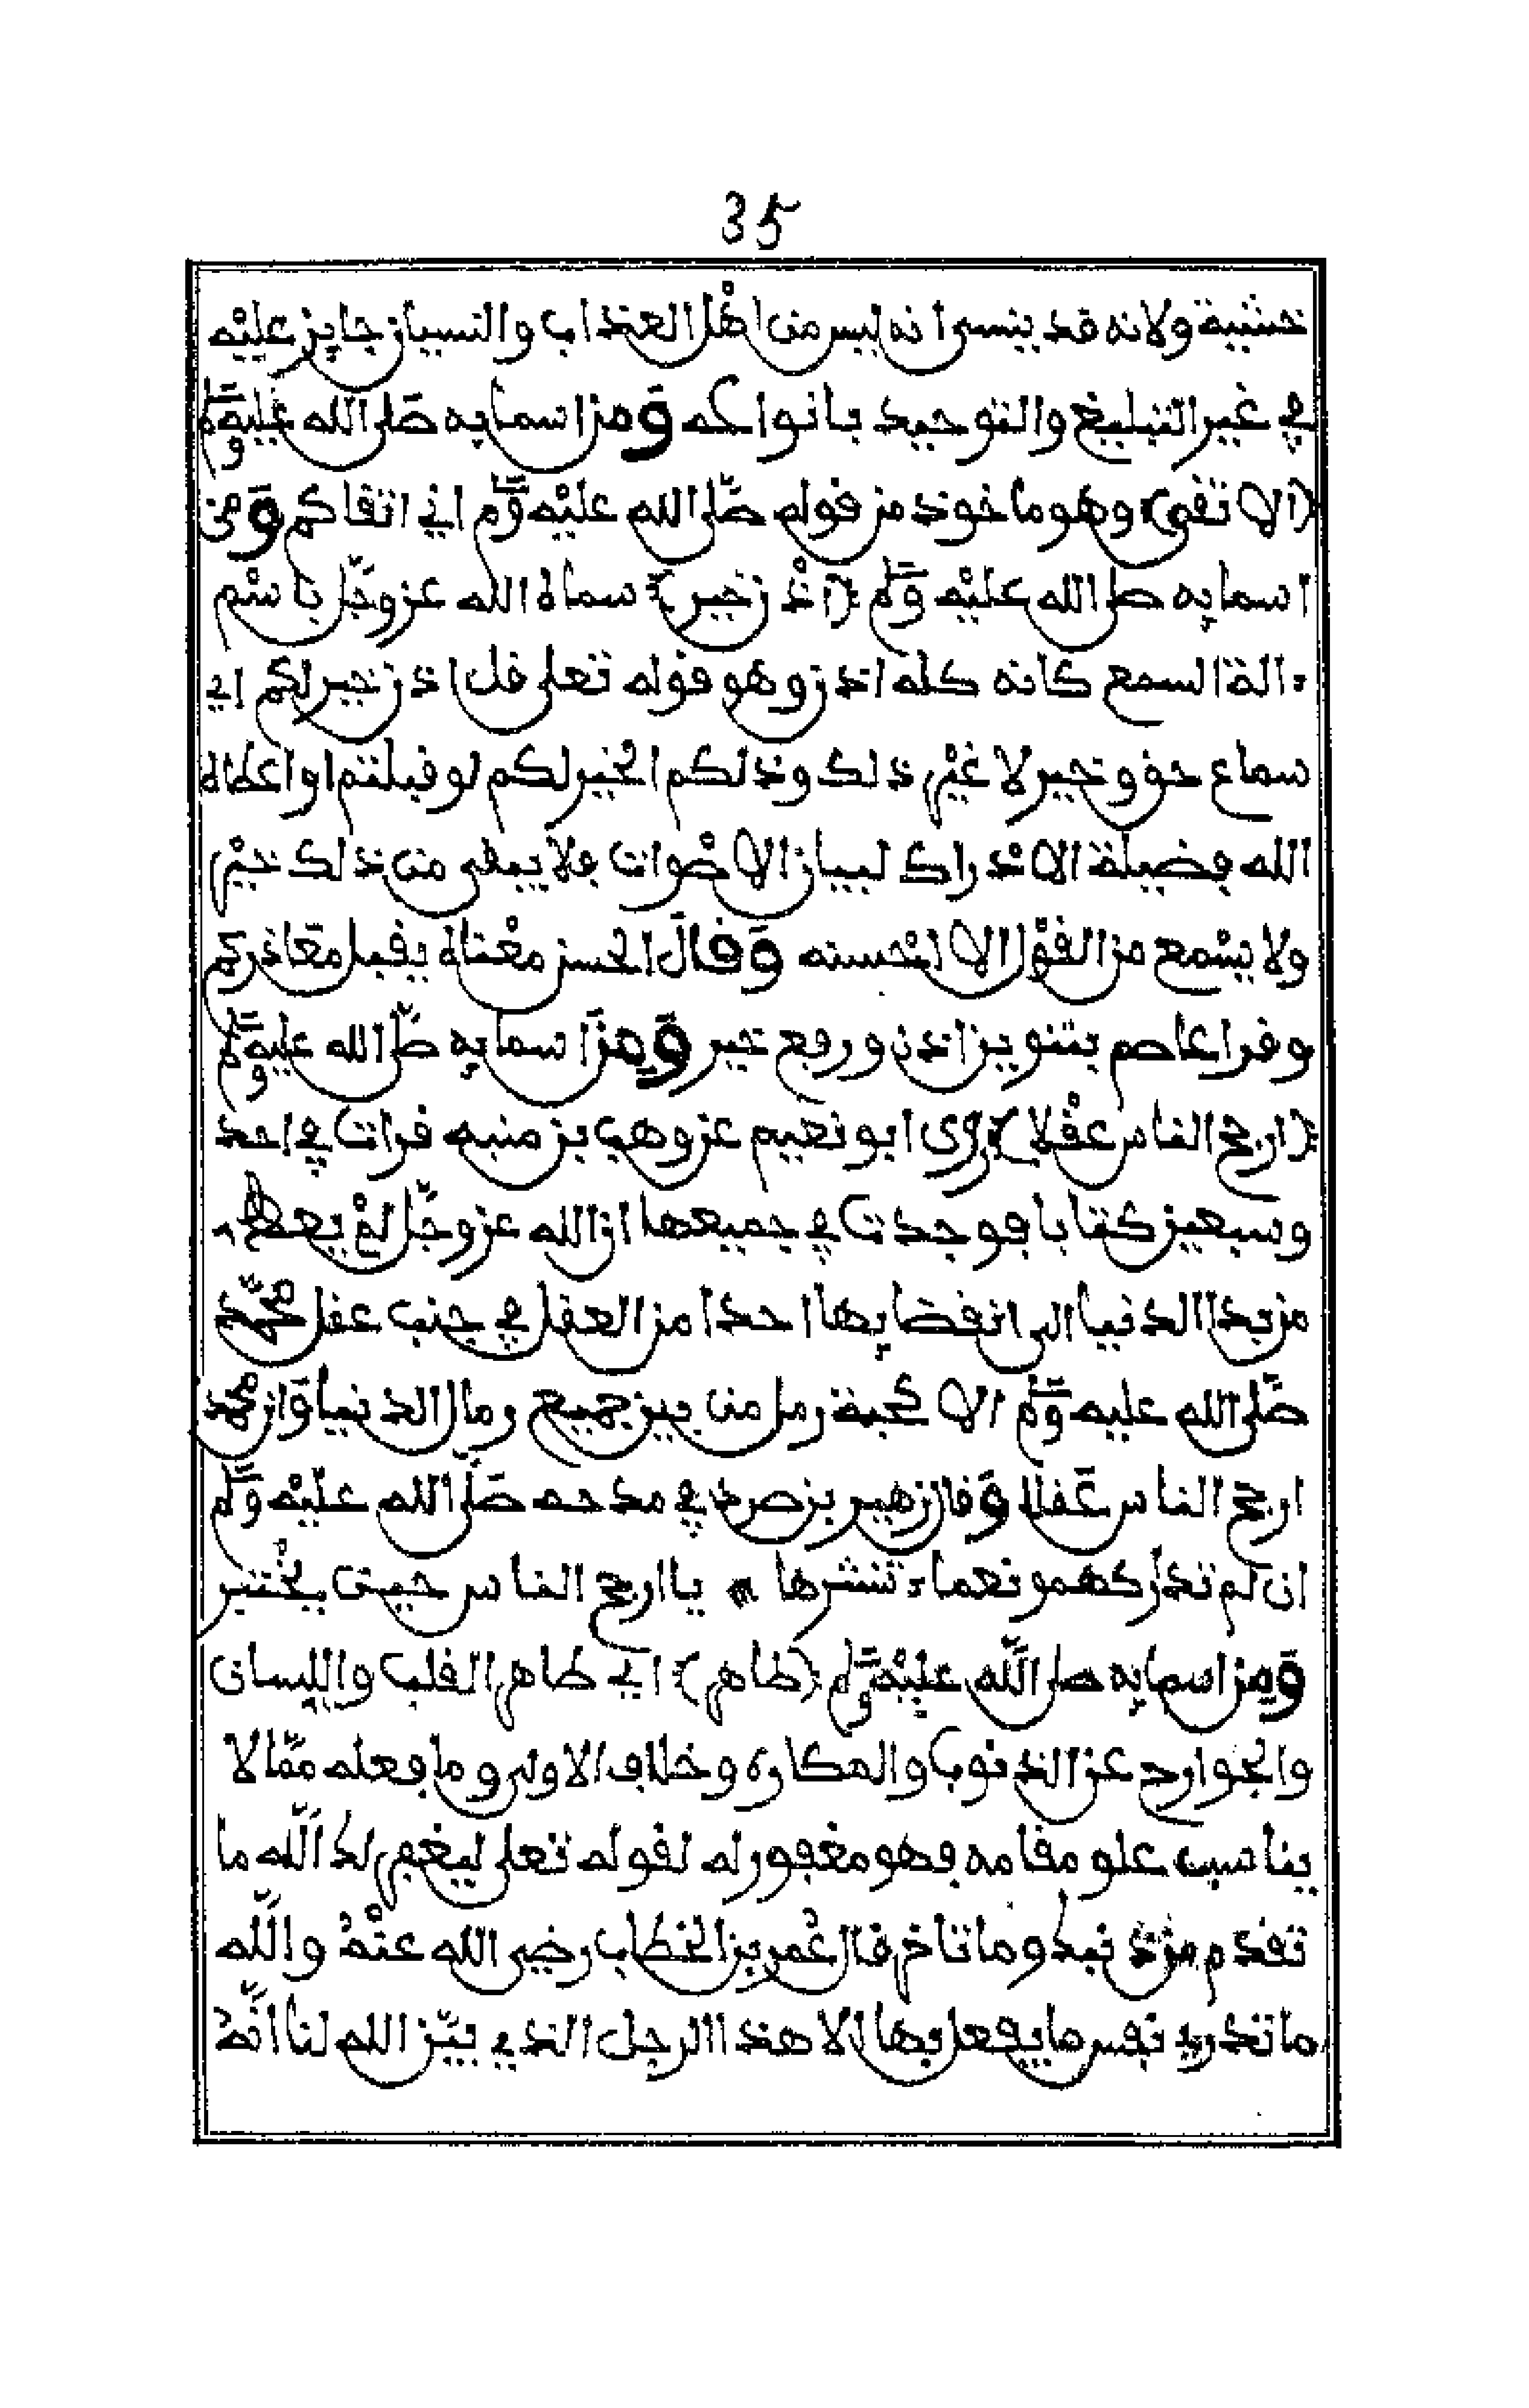 35
خشية ولانه قد ينسى انه ليس من اهْل العذاب والنسيان جايز عليْه
في غير التبليغ والتوحيد بانواعه وَمن اسمايه صَلى الله عليه وَسلم
(الاتقى) وهو ماخوذ من قوله صَلى الله عليْه وَسلم اني اتقاكم وَمن
اسمايه صلى الله عليْه وَسلم (اذْن خير) سماه الله عز وجَل باسْم
ءالة السمع كانه كله اذن وهو قوله تعلى قل اذن خير لكم اي
سماع حق وخير لا غيْر ذلك وذلكم الخيْر لكم لو قبلتم او اعطاه
الله فضيلة الادْراك لبيان الاصْوات فلا يبقى من ذلك خيْر
ولا يسْمع من القوْل الا احْسنه وَقالَ الحسن معْناه يقبل معَاذركم
وقرا عاصم بتنوين اذن ورفع خير وَمن اسمايه صَلى الله عليه وَسلم
(ارجح الناس عقْلا) روى ابو نعيم عن وهب بن منبه قرات في احد
وسبعين كتابا فوجدت في جميعها ان الله عز وجَل لمْ يعط
من بدا الدنيا الى انقضايها احدا من العقل في جنب عقل محمَّد
صَلى الله عليه وَسلم الا كحبة رمل من بين جميع رمال الدنيا وَان محمد
ارجح الناس عَقلا وَقال زهير بن صرد في مدحه صَلَى الله عليْه وَسلم
ان لم تداركهمو نعماء تنشرها * يا ارجح الناس حين يخْتبر
وَمن اسمايه صلى الله عليْه وَسلم (طاهر) اي طاهر القلب والليسان
والجوارح عن الذنوب والمكاره وخلاف الاولى وما فعله ممّا لا
يناسب علو مقامه فهو مغفور له لقوله تعلى ليغفر لك الله ما
تقدم من ذنبك وما تاخر قال عُمر بن الخطاب رضي الله عنْهُ والله
ما تدري نفس ما يفعل بها الا هذا الرجل الذي بيّن الله لنا اَنَّهُ